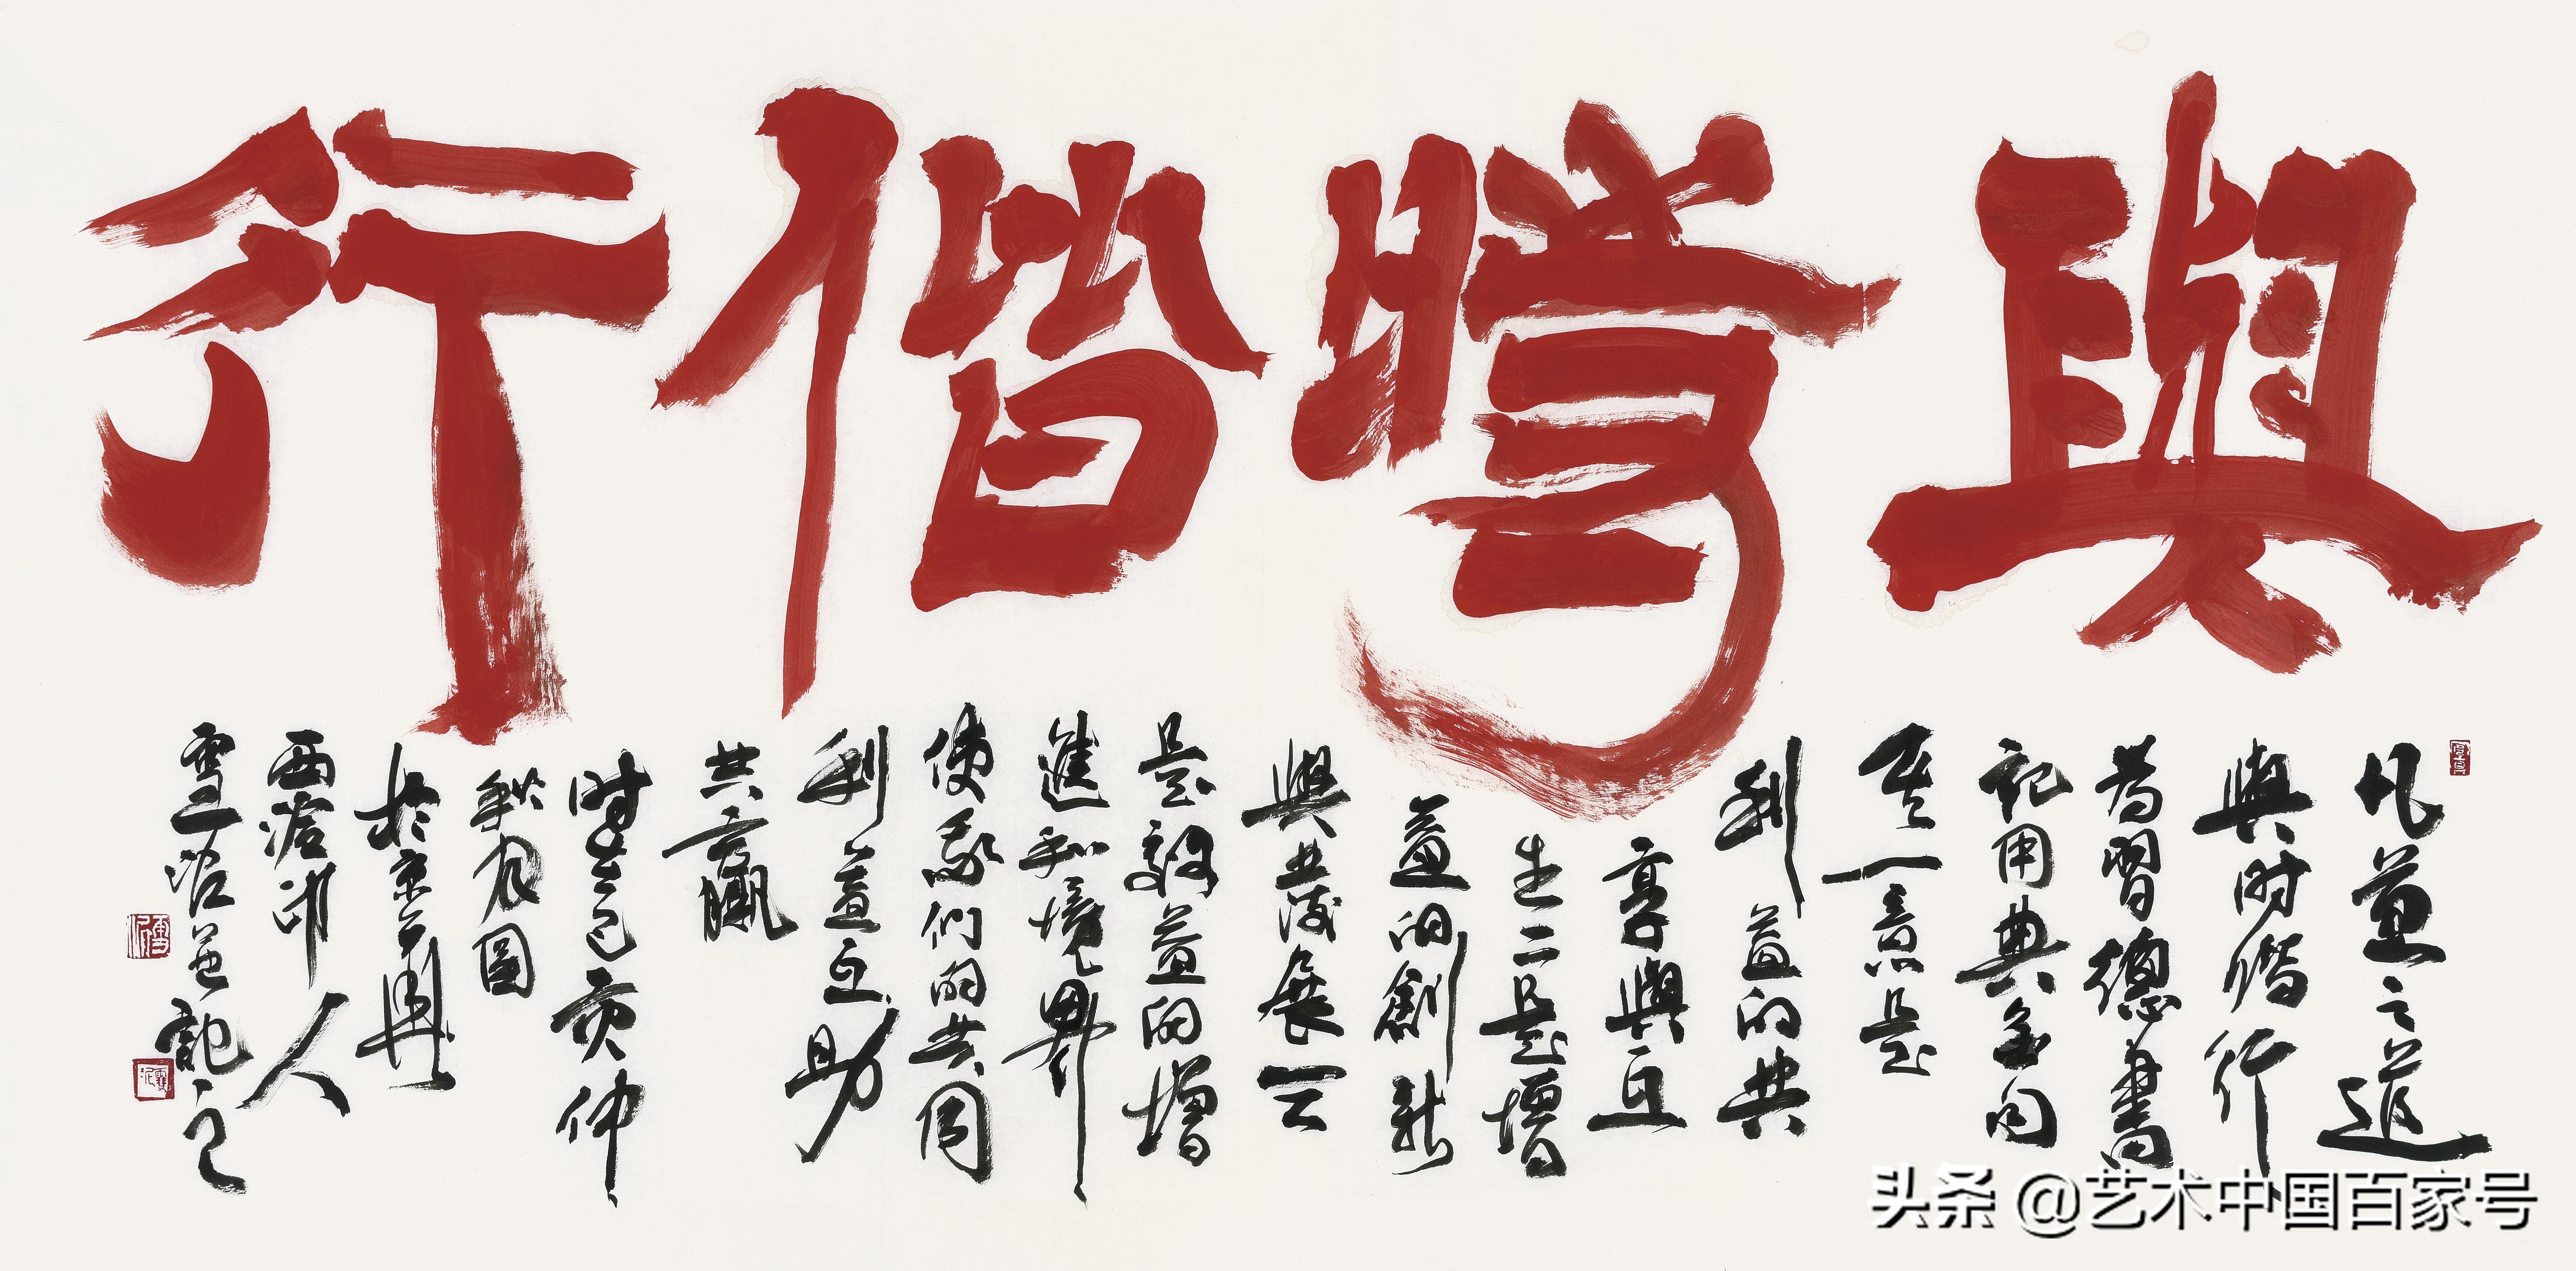 與時偕行
凡益之道
與时偕行
為習總書
記用典金句
其一意是
利益的共
享與互
生二是增
益的創新
與發展三
是效益的增
進和境界
使我们的共同
利益互助
共贏
时己亥仲
秋月圆
於京
西泠印人
雪并記之
头条 @艺术中国百家号